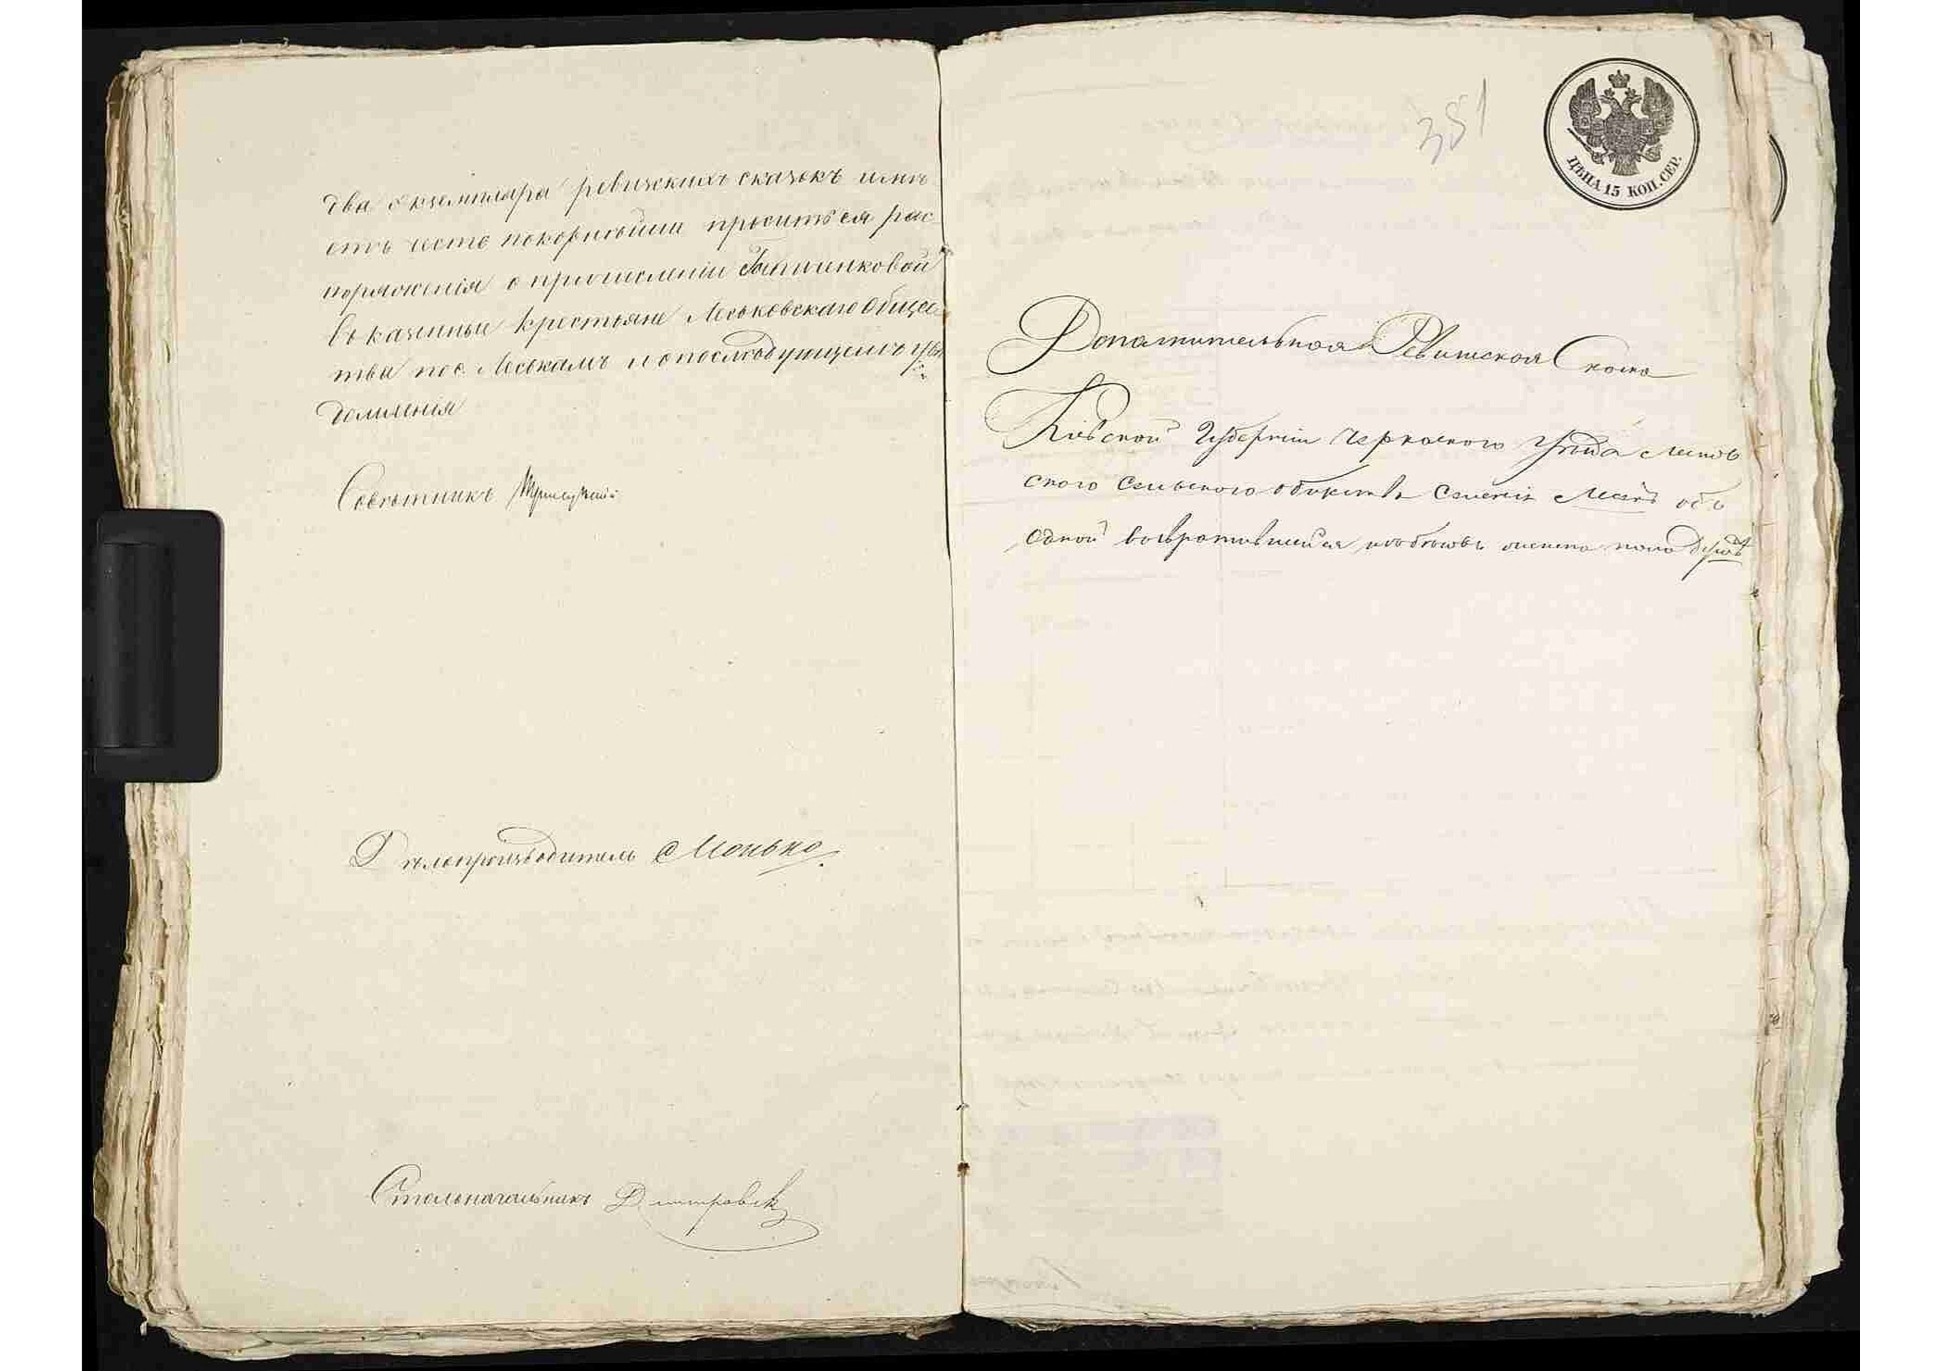 два экземпляра ревизскихъ сказокъ имѣ
етъ честь покорнѣйше просить ея рас
поряженія о причисленіи
въ казенные крестьяне Леськовскаго общес
тва по с. Леськамъ и о послѣдующемъ увѣ
домленія
Совѣтникъ
Дѣлопроизводитель Монько
Столоначальникъ
351
ЦѢНА 15 КОП. СЕР.
Дополнительная Ревизская Сказка
Кіевской Губерніи Черкаского Уѣзда Лесков
ского Сельского общества Селенія Лески объ
одной возвратившейся изъ бѣговъ женска пола душѣ